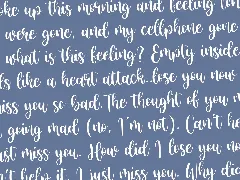 oke up this morning and feeling lon
were gone, and my cellphone gone
what is this feeling? Empty inside
ls like a heart attack..lose you now
miss you so bad.The thought of you m
going mad (no, I'm not). Can't he
ust miss you. How did I lose you no
n't help it, I just miss you. Why did